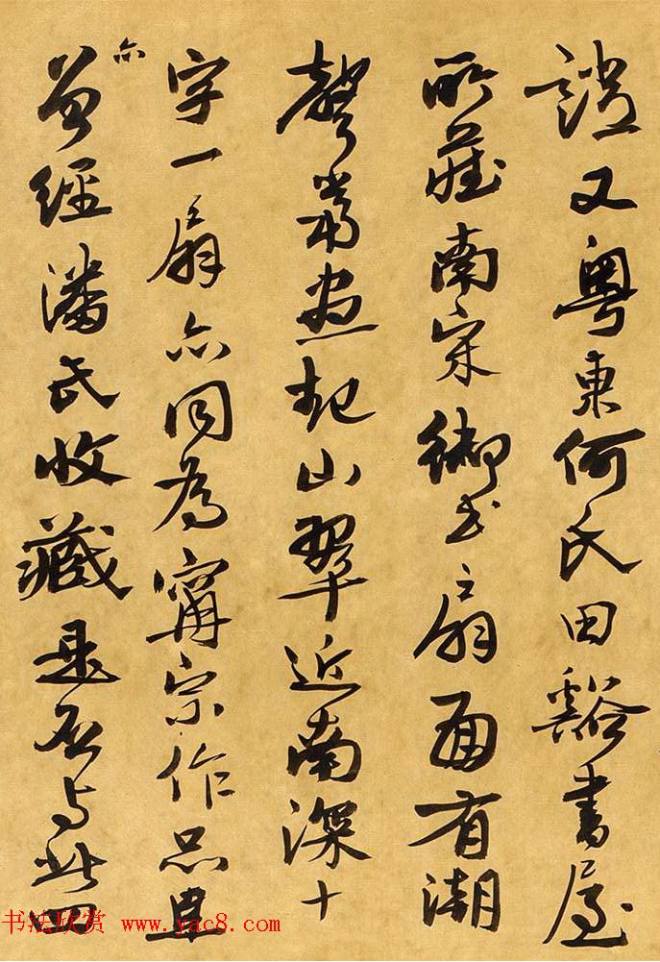 證又粵東何氏田谿書屋
所藏南宋御书扇面有潮
聲當晝起山翠近南深十
字一扇亦同為甯宗作品且
亦曾經潘氏收藏是否与此四
书法欣赏 www.yac8.com